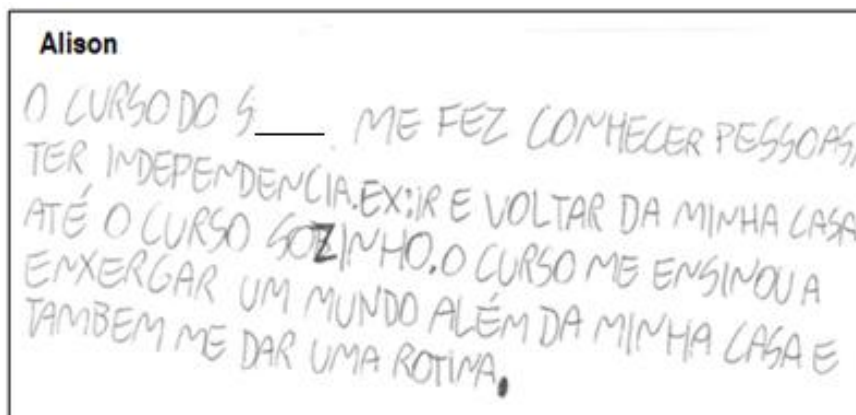 Alison
O CURSO DO S____ ME FEZ CONHECER PESSOAS,
TER INDEPENDENCIA.EX:IR E VOLTAR DA MINHA CASA
ATÉ O CURSO SOZINHO.O CURSO ME ENSINOU A
ENXERGAR UM MUNDO ALÉM DA MINHA CASA E
TAMBEM ME DAR UMA ROTINA.